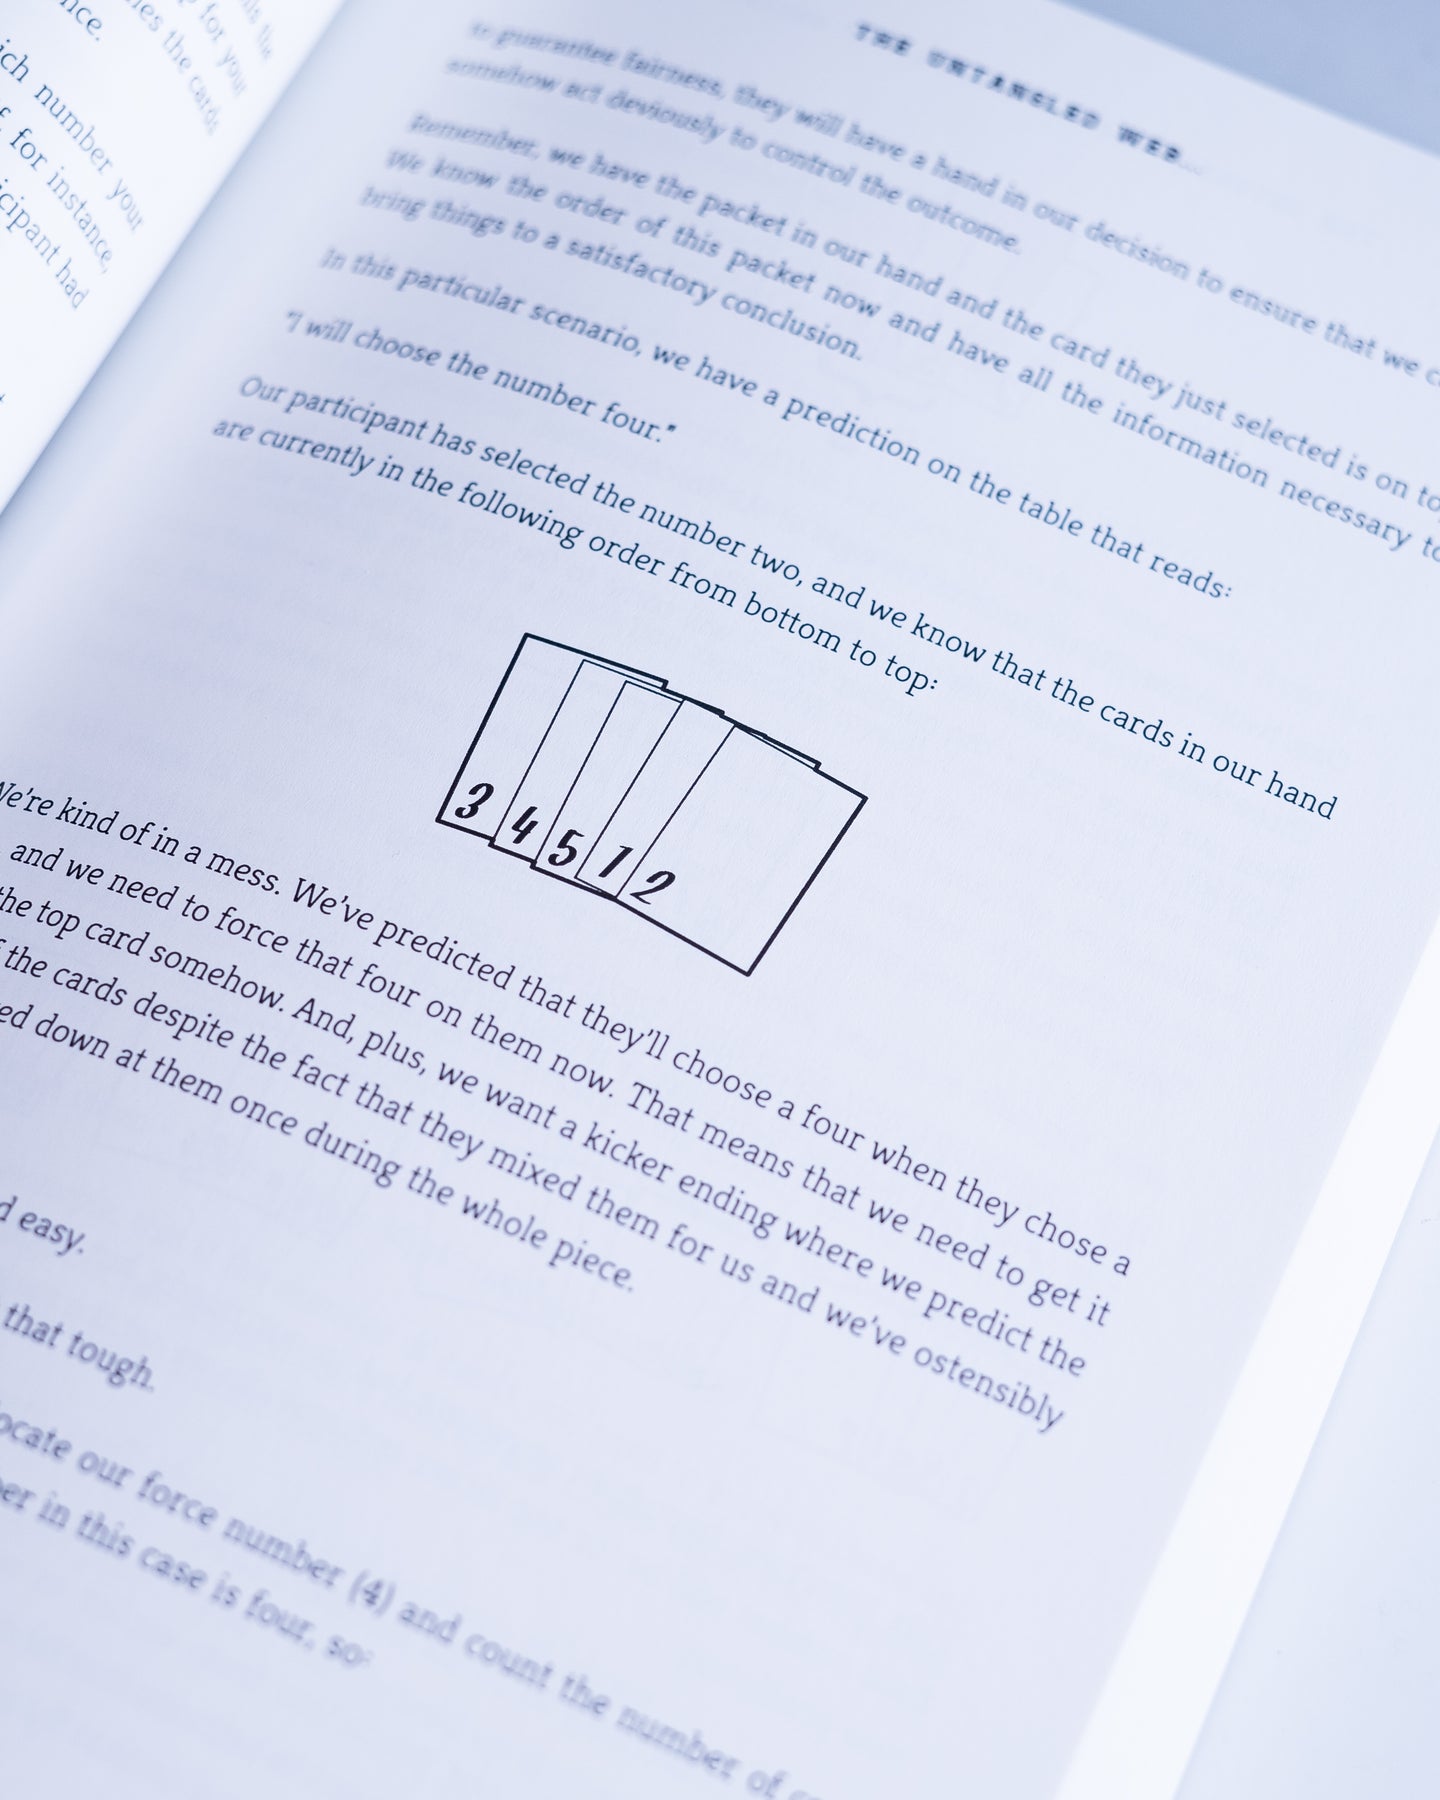 ich number your
for instance,
icipant had
for your
the cards
THE UNTANGLED WEB
to guarantee fairness, they will have a hand in our decision to ensure that we
somehow act deviously to control the outcome.
Remember, we have the packet in our hand and the card they just selected is on
We know the order of this packet now and have all the information necessary to
bring things to a satisfactory conclusion.
In this particular scenario, we have a prediction on the table that reads:
"I will choose the number four."
Our participant has selected the number two, and we know that the cards in our hand
are currently in the following order from bottom to top:
3 4 5 1 2
We're kind of in a mess. We've predicted that they'll choose a four when they chose a
and we need to force that four on them now. That means that we need to get it
the top card somehow. And, plus, we want a kicker ending where we predict the
f the cards despite the fact that they mixed them for us and we've ostensibly
ed down at them once during the whole piece.
d easy.
that tough.
ocate our force number (4) and count the number of
er in this case is four, so: